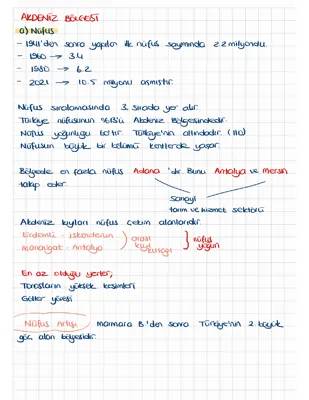 AKDENİZ BÖLGESİ
a) Nüfus
- 1941'den sonra yapılan ilk nüfus sayımında 2.2 milyondu.
- 1960 → 3.4
- 1980 → 6.2
- 2021 → 10.5 milyonu aşmıştır.
Nüfus sıralamasında 3. sırada yer alır.
Türkiye nüfusunun %13'ü Akdeniz Bölgesindedir.
Nüfus yoğunluğu Türkiye'nin altındadır. (110)
Nüfusun büyük bir bölümü kentlerde yaşar.
Bölgede en fazla nüfus Adana 'dır. Bunu Antalya ve Mersin
takip eder.
sanayi
tarım ve hizmet sektörü
Akdeniz kıyıları nüfus çekim alanlarıdır.
Erdemli - İskenderun
Manavgat - Antalya
arası kıyı kuşağı
nüfus yoğun
En az olduğu yerler;
Torosların yüksek kesimleri
Göller yöresi
Nüfus Artışı Marmara B.'den sonra Türkiye'nin 2. büyük
göç alan bölgesidir.